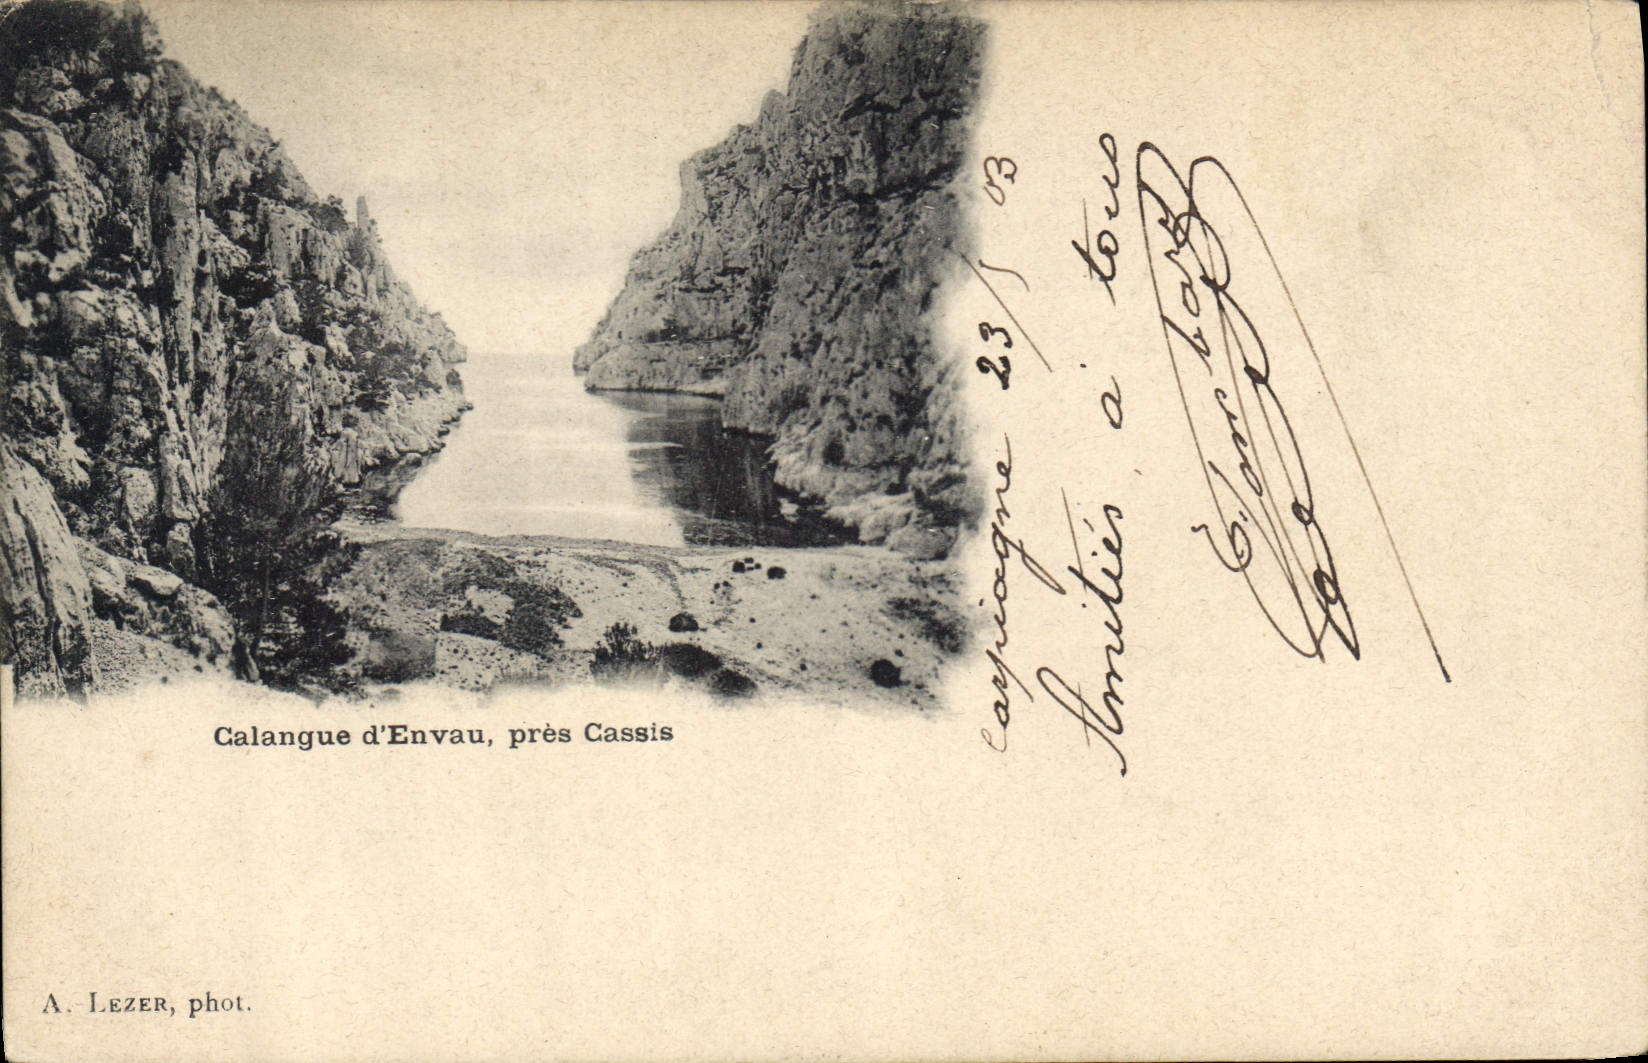 Calangue d'Envau, près Cassis
A. LEZER, phot.
Carpiagne 23/5 03
Amitiés à tous